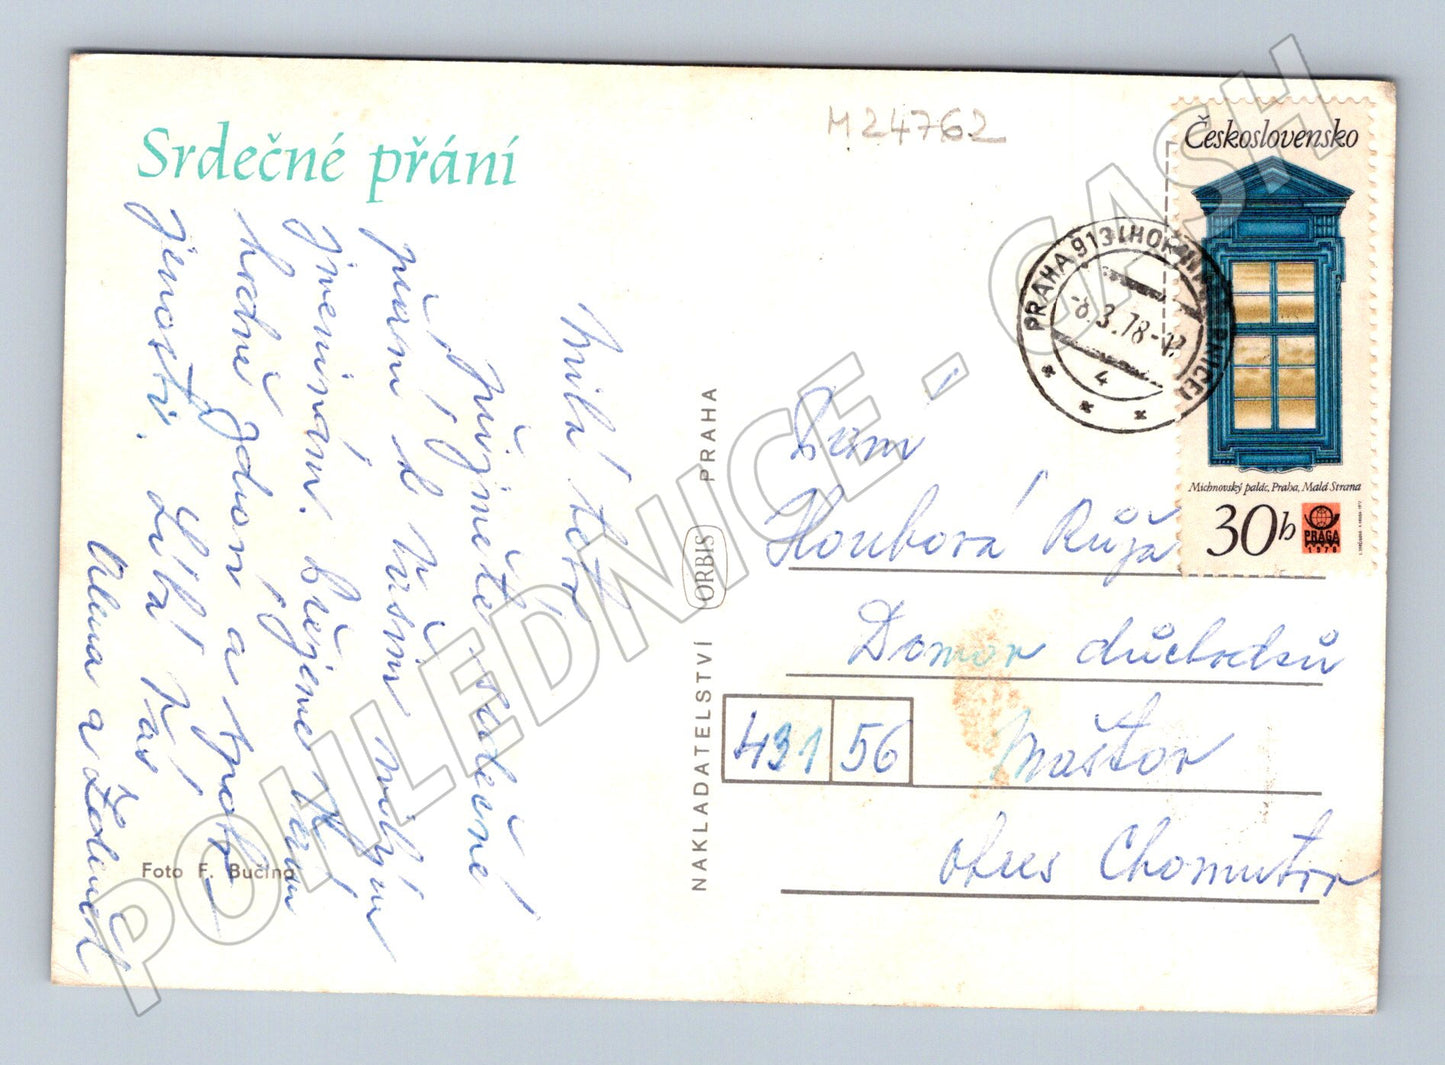 M24762
Srdečné přání
Milá teto,
přijměte srdečné
přání k Vašim milým
jmeninám. Přejeme Vám
hodně zdraví a spoko-
jenosti. Líbá Vás
Alena a Zdeněk
Foto F. Bučina
NAKLADATELSTVÍ ORBIS PRAHA
Československo
Michnovský palác, Praha, Malá Strana
30h
PRAGA
1978
PRAHA 913 (HOR
-8.3.78-
4
Paní
Houbová Růža
Domov důchodců
431 56
Maštov
okres Chomutov
POHLEDNICE - CASH